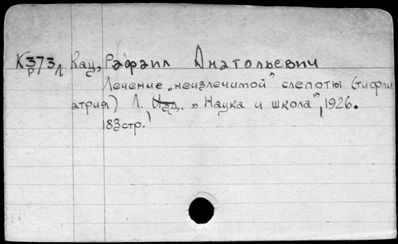 К373 Кац, Рафаил Анатольевич
р Л
Лечение „неизлечимой" слепоты (тифли
атрия) Л. Изд. „Наука и школа", 1926.
183стр.